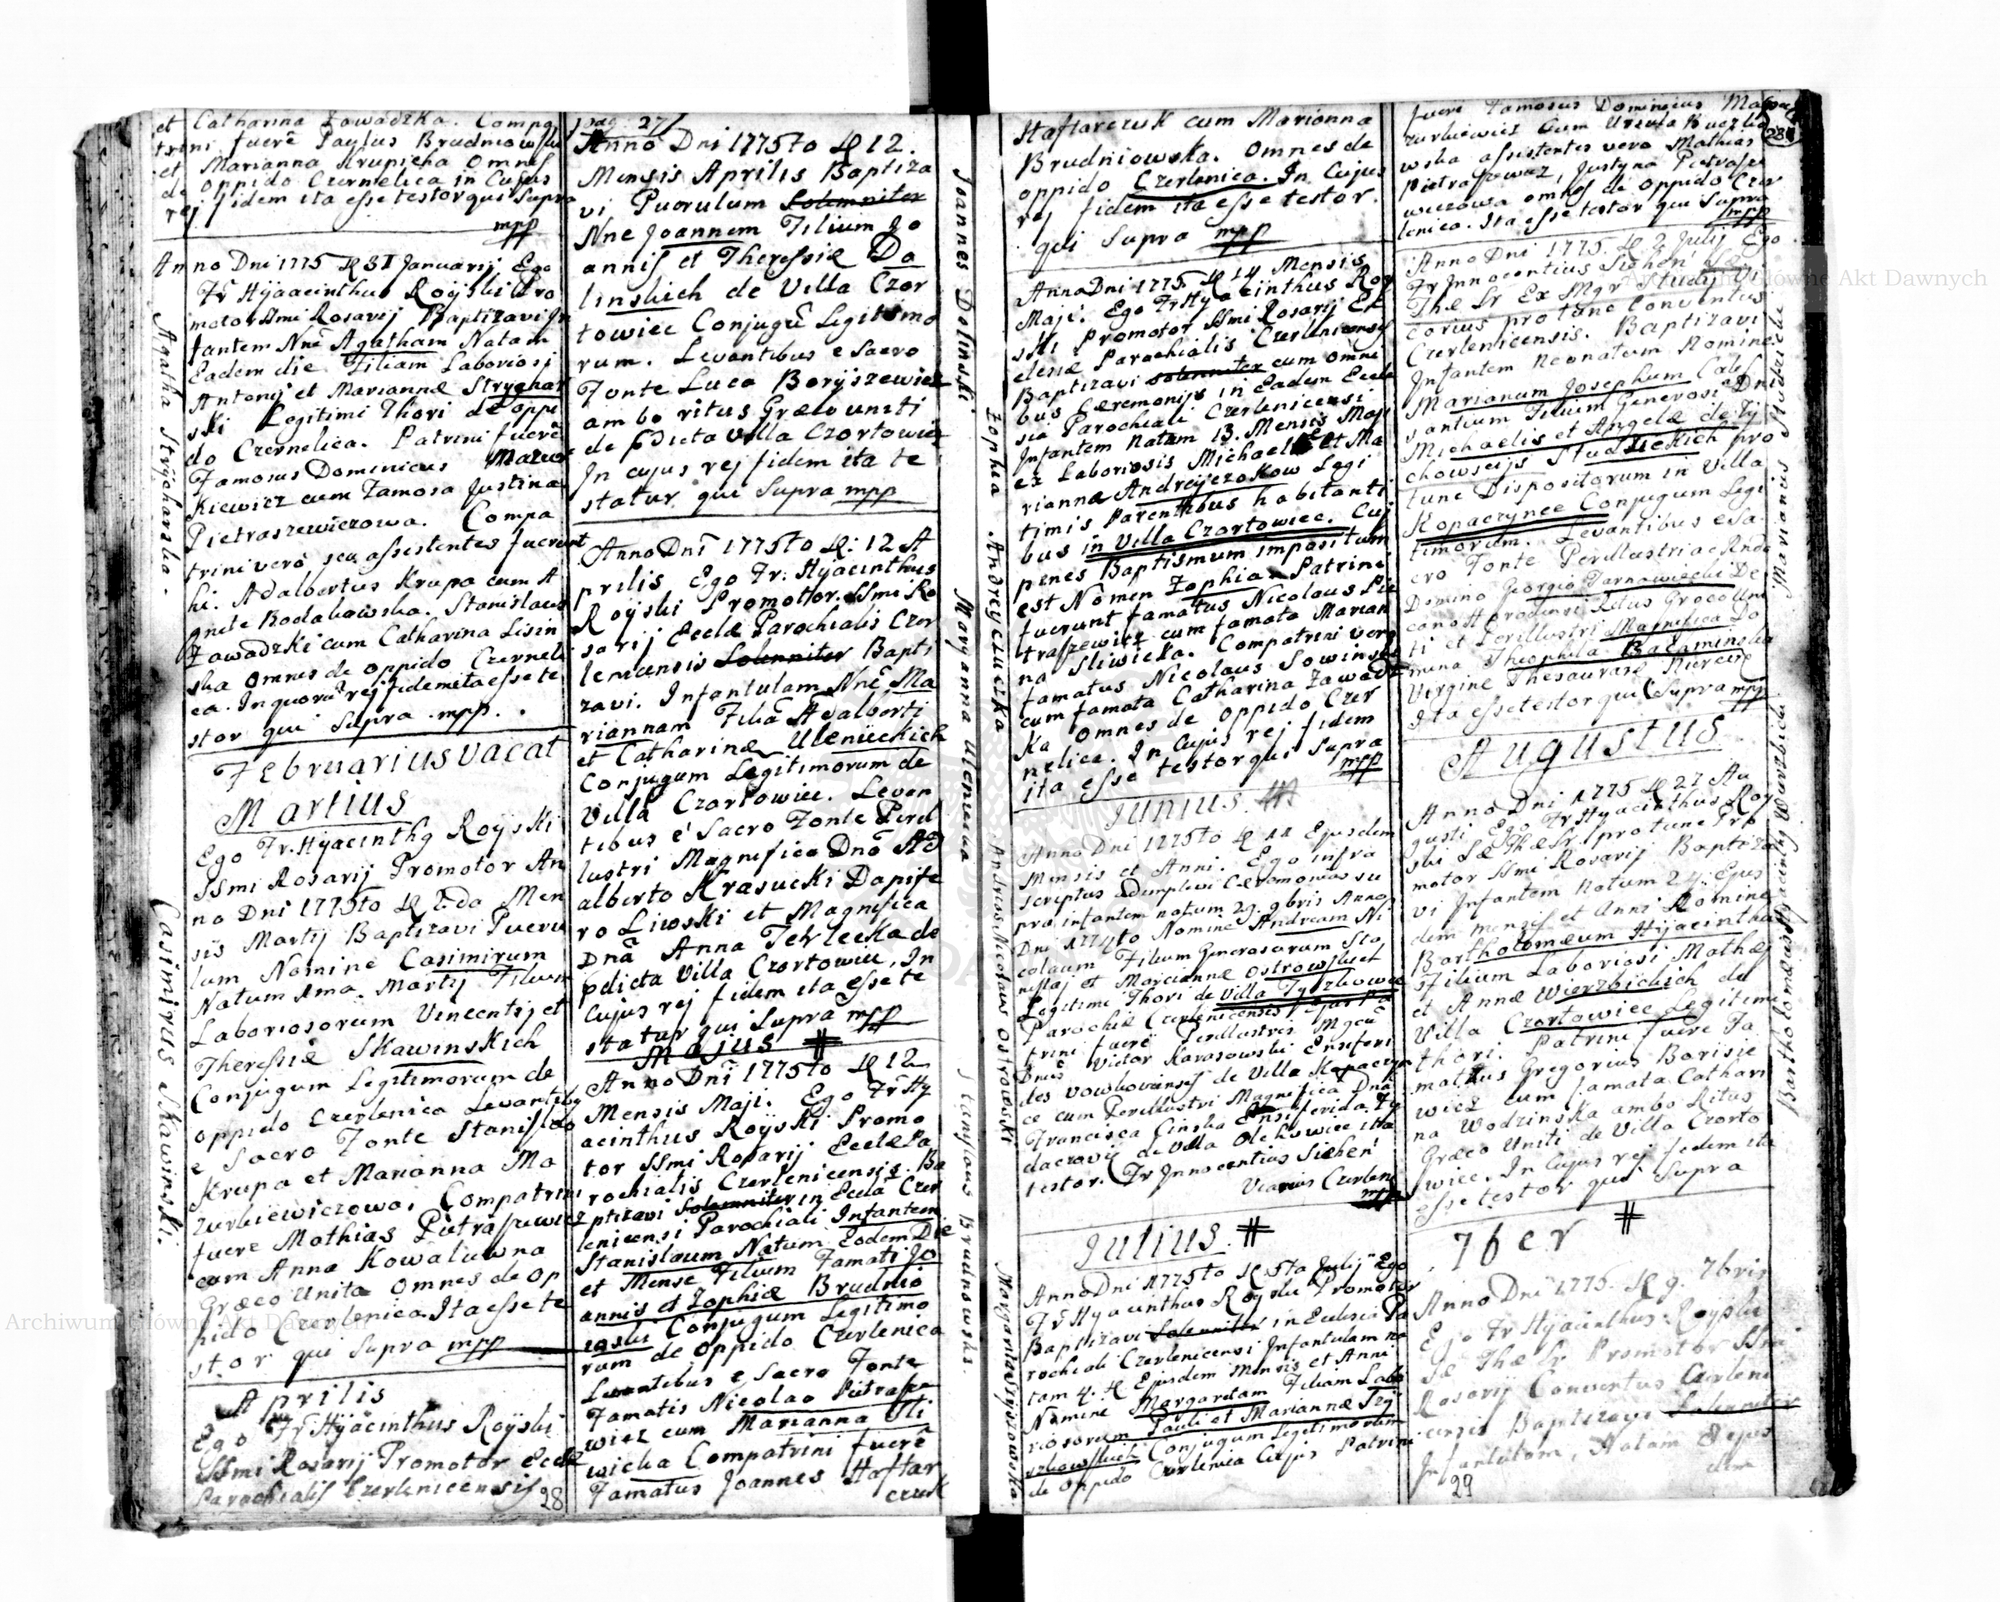 et Catharina Zawadzka. Compa
trini fuerē Paulus Brudniowski
et Marianna Krupicha Omnes
de Oppido Czernelica in Cujus
rej fidem ita esse testor qui Supra
mpp
Anno Dni 1775 31 Januarij Ego
Fr Hijaacinthus Roÿski Pro
motor SSmi Rosarij Baptizavi In
fantem Nnē Agatham Natam
Eadem die. Filiam Laboriosi
Antonij et Mariannæ Stryghar
ski Legitimi Thori de oppi
do Czernelica. Patrini fuerē
Famosus Dominicus Mazur
Kiewicz cum Famosa Justina
Pietraszewiczowa. Compa
trini verò seu assistentes fuerunt
hi. Adalbertus Krupa cum A
gnete Bodakowska. Stanislaus
Zawadzki cum Catharina Lisin
ska omnes de oppido Czerneli
ca. In quorū rej fidem ita esse te
stor qui Supra mpp.
Agatha Stryharska.
Februarius vacat
Martius
Ego Fr. Hyacinthg Royski
SSmi Rosarij Promotor An
no Dni 1775to 2da Men
sis Martij Baptizavi Pueru
lum Nomine Casimirum
Natum 1ma Martij Filium
Laboriosorum Vincentij et
Theresiæ Skawinskich
Conjugum Legitimorum de
oppido Czerlenica Levantibg
e Sacro Fonte Stanislao
Krupa et Marianna Ma
zurkiewiczowa, Compatrini
fuere Mathias Pietraszewicz
cum Anna Kowaluwna
Græco Unita Omnes de Op
pido Czerlenica. Ita esse te
stor qui Supra mpp
Casimirus Skawinski.
Aprilis
Ego Fr Hÿacinthus Roÿski
SSmi Rosarij Promotor Eccle
Parochialis Czerlenicensis
28
pag. 27
Anno Dni 1775to 12.
Mensis Aprilis Baptiza
vi Puerulum Solemniter
Nne Joannem Filium Jo
annis et Theresiæ Do
linskich de Villa Czor
towiec Conjugū Legitimo
rum. Levantibus e Sacro
Fonte Luca Boryszewicz
ambo ritus Græco uniti
de pdicta Villa Czortowiec
In cujus rej fidem ita te
statur qui Supra mpp
Joannes Dolinski
Anno Dni 1775to 12 A
prilis Ego Fr: Hÿacinthus
Roÿski Promottor. SSmi Ro
sarij Eccle Parochialis Czer
lenicensis Solemniter Bapti
zavi. Infantulam Nnē Ma
riannam Filiā Adalberti
et Catharinæ Uleniuckich
Conjugum Legitimorum de
Villa Czortowiec. Levan
tibus é Sacro Fonte Peril
lustri Magnifico Dno Ad
alberto Krasucki Dapife
ro Liwski et Magnifica
Dnā Anna Terlecka de
pdicta Villa Czortowiec, In
Cujus rej fidem ita esse te
statur qui Supra mpp
Maryanna Ulenicka
Majus #
Anno Dni 1775to 12
Mensis Maji. Ego Fr Hy
acinthus Roÿski Promo
tor SSmi Rosarij Eccle Pa
rochialis Czerlenicensis. Ba
ptizavi Solemniter in Eccla Czer
lenicensi Parochiali Infantem
Stanislaum Natum Eodem Die
et Mense Filium Famati Jo
annis et Zophiæ Brudnio
wski Conjugum Legitimo
rum de Oppido Czerlenica
Levantibus e Sacro Fonte
Famatis Nicolao Pietrasze
wicz cum Marianna Sli
wicka Compatrini fuerē
Famatus Joannes Haftar
czuk
Stanislaus Brudnowski.
Haftarczuk cum Marianna
Brudniowska. Omnes de
oppido Czerlenica. In Cujus
rej fidem ita esse testor.
qui Supra mpp
Anno Dni 1775. 14 Mensis
Maji. Ego Fr Hyacinthus Roy
ski Promotor SSmi Rosarij Ec
clesiæ Parochialis Czerlenicensis
Baptizavi solemniter cum omni
bus Cæremonijs in Eadem Eccle
sia Parochiali Czerlenicensi
Infantem Natam 13. Mensis Maji
ex Laboriosis Michaele et Ma
rianna Andreyczakow Legi
timis Parentibus habitanti
bus in Villa Czortowiec. Cuj
penes Baptismum impositum
est Nomen Zophia. Patrini
fuerunt famatus Nicolaus Pie
traszewicz cum famata Marian
na Sliwicka. Compatrini vero
famatus Nicolaus Sowinski
cum famata Catharina Zawadz
ka Omnes de Oppido Czer
nelica. In Cujus rej fidem
ita esse testor qui Supra
mpp
Zophia Andreyczuczka
Junius
Anno Dni 1775to 11 Ejusdem
Mensis et Anni. Ego infra
scriptus adimplevi Cæremonias su
pra infantem natum 29. 9bris Anno
Dni 1774to Nomine Andream Ni
colaum Filium Generosorum Sta
nislaj et Marciannæ Ostrowskich
Legitimi Thori de Villa Tyszkowce
Parochiæ Czerlenicensis Pa
trini fuerē Perillustris Mgcus
Dnus Victor Karasowski Ensiferi
des de Villa Kopaczyn
ce cum Perillustri Magnifica Dna
Francisca Cinska Ensiferida
daczowi de Villa Olchowiec ita
testor. Fr Innocentius Sichen
Vicarius Czerlen
mpp
Andreas Nicolaus Ostrowski
Julius. #
Anno Dni 1775to 5ta Julij Ego
Fr Hyacinthus Royski Promotor
Baptizavi Solemniter in Ecclesia Pa
rochiali Czerlenicensi Infantulam na
tam 4. Ejusdem Mensis et Anni
Nomine Margaritam Filiam Labo
riosorum Pauli et Mariannæ Try
szkowskich Conjugum Legitimorum
de oppido Czerlenica Cujus Patrini
fuere Famosus Dominicus Ma
zurkiewicz cum Ursula
wska assistentes vero Mathias
Pietraszewicz, Justyna Pietrasze
wiczowa omnes de oppido Czer
lenica. Ita esse testor qui Supra
mpp
28
Anno Dni 1775. 2 Julij Ego
Fr Innocentius Sichen
Thæ Lr Ex Mgr Studij Vi
carius pro tunc Conventus
Czerlenicensis. Baptizavi
Infantem Neonatum Nomine
Marianum Josephum
Filium Generosi Dni
Michaelis et Angelæ de Ty
chowscijs Studzickich pro
tunc Dispositorum in Villa
Kopaczynce Conjugum Legi
timorum. Levantibus e Sa
cro Fonte Perillustri
Domino Georgio Tarnawiecki De
cano Ritus Græco Uni
ti et Perillustri Magnifica Do
mina Theophila
Virgine Thesauraria
Ita esse testor qui Supra mpp
Marianus Studzicki
Augustus
Anno Dni 1775 27 Au
gusti Ego Fr Hyacinthus Roy
ski Sæ Thæ Lr pro tunc Pro
motor SSmi Rosarij Baptiza
vi Infantem Natum 24. Ejus
dem mensis et Anni Nomine
Bartholomæum Hijacintha
Filium Laboriosi Mathæj
et Annæ Wierzbickich de
Villa Czortowiec Legitimi
thori. Patrini fuere Fa
matus Gregorius Borisie
wicz cum famata Cathari
na Wodzinska ambo Ritus
Græco Uniti de Villa Czorto
wiec. In Cujus rej fidem ita
esse testor qui Supra
Bartholomæus Hyacinthg Wierzbicki
7ber #
Anno Dni 1775. 9. 7bris
Ego Fr Hÿacinthus. Roÿski
Sæ Thæ Lr Promotor SSmi
Rosarij Conventus Czerleni
censis Baptizavi Solemniter
Infantulam, Natam 8 ejus
dem
29
Archiwum Główne Akt Dawnych
Archiwum Główne Akt Dawnych